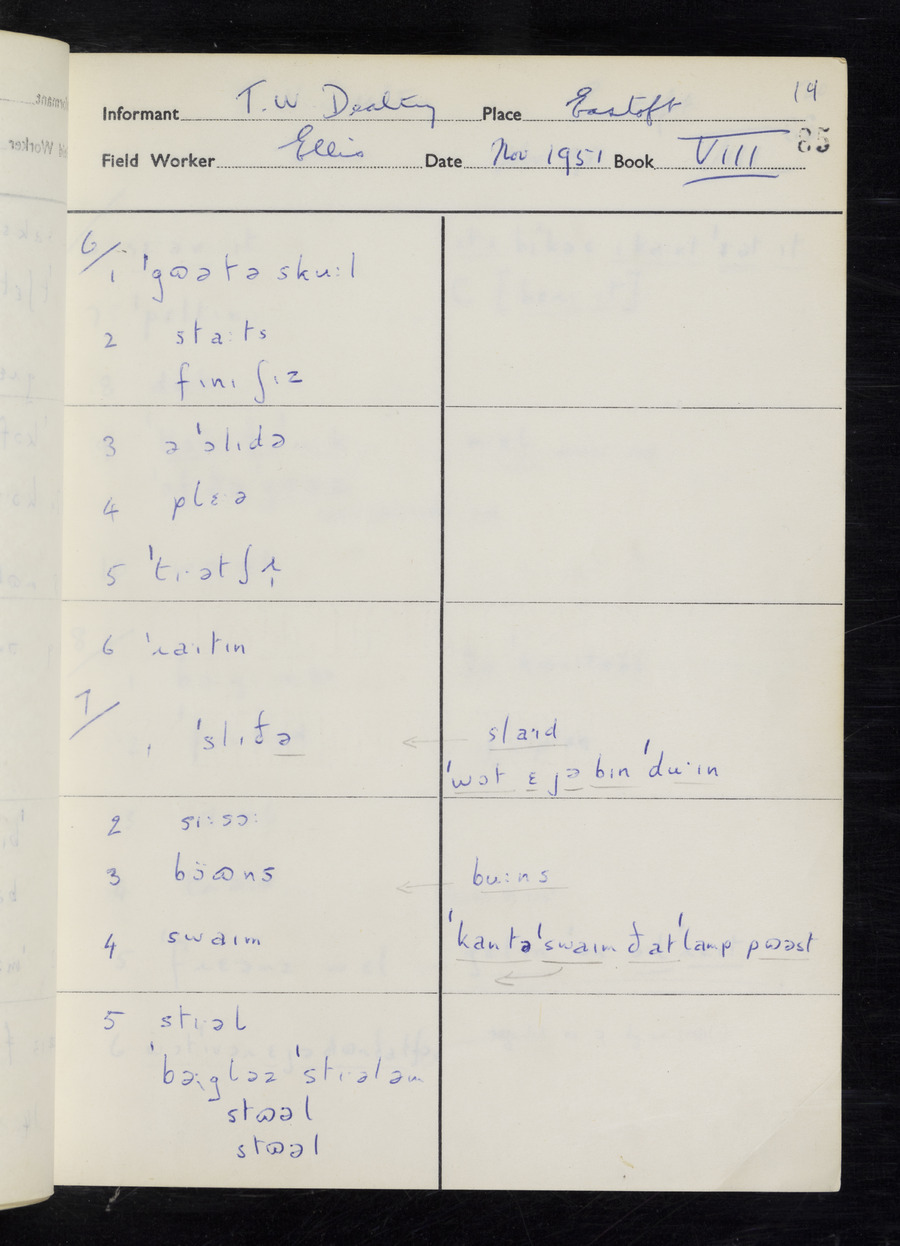 14
Informant T. W. Dealtry Place Eastoft
85
Field Worker Ellis Date Nov 1951 Book VIII
6/
1 ˈgɷətə skuːl
2 staːts
fɪnɪʃɪz
3 əˈɔlɪdə
4 plɛə
5 ˈtɪˑətʃɹ̩
6 ˈɹaːɪtɪn
7/
1 ˈslɪđə ← slaːɪd
ˈwɔt ɛ jə bɪn ˈduˑɪn
2 sɪːsɔː
3 böɷns ← buːns
4 swaɪm ˈkantəˈswaɪm đatˈlamp pɷəst
5 stɪəl
ˈbəːgləz ˈstɪələm
stɷəl
stɷəl